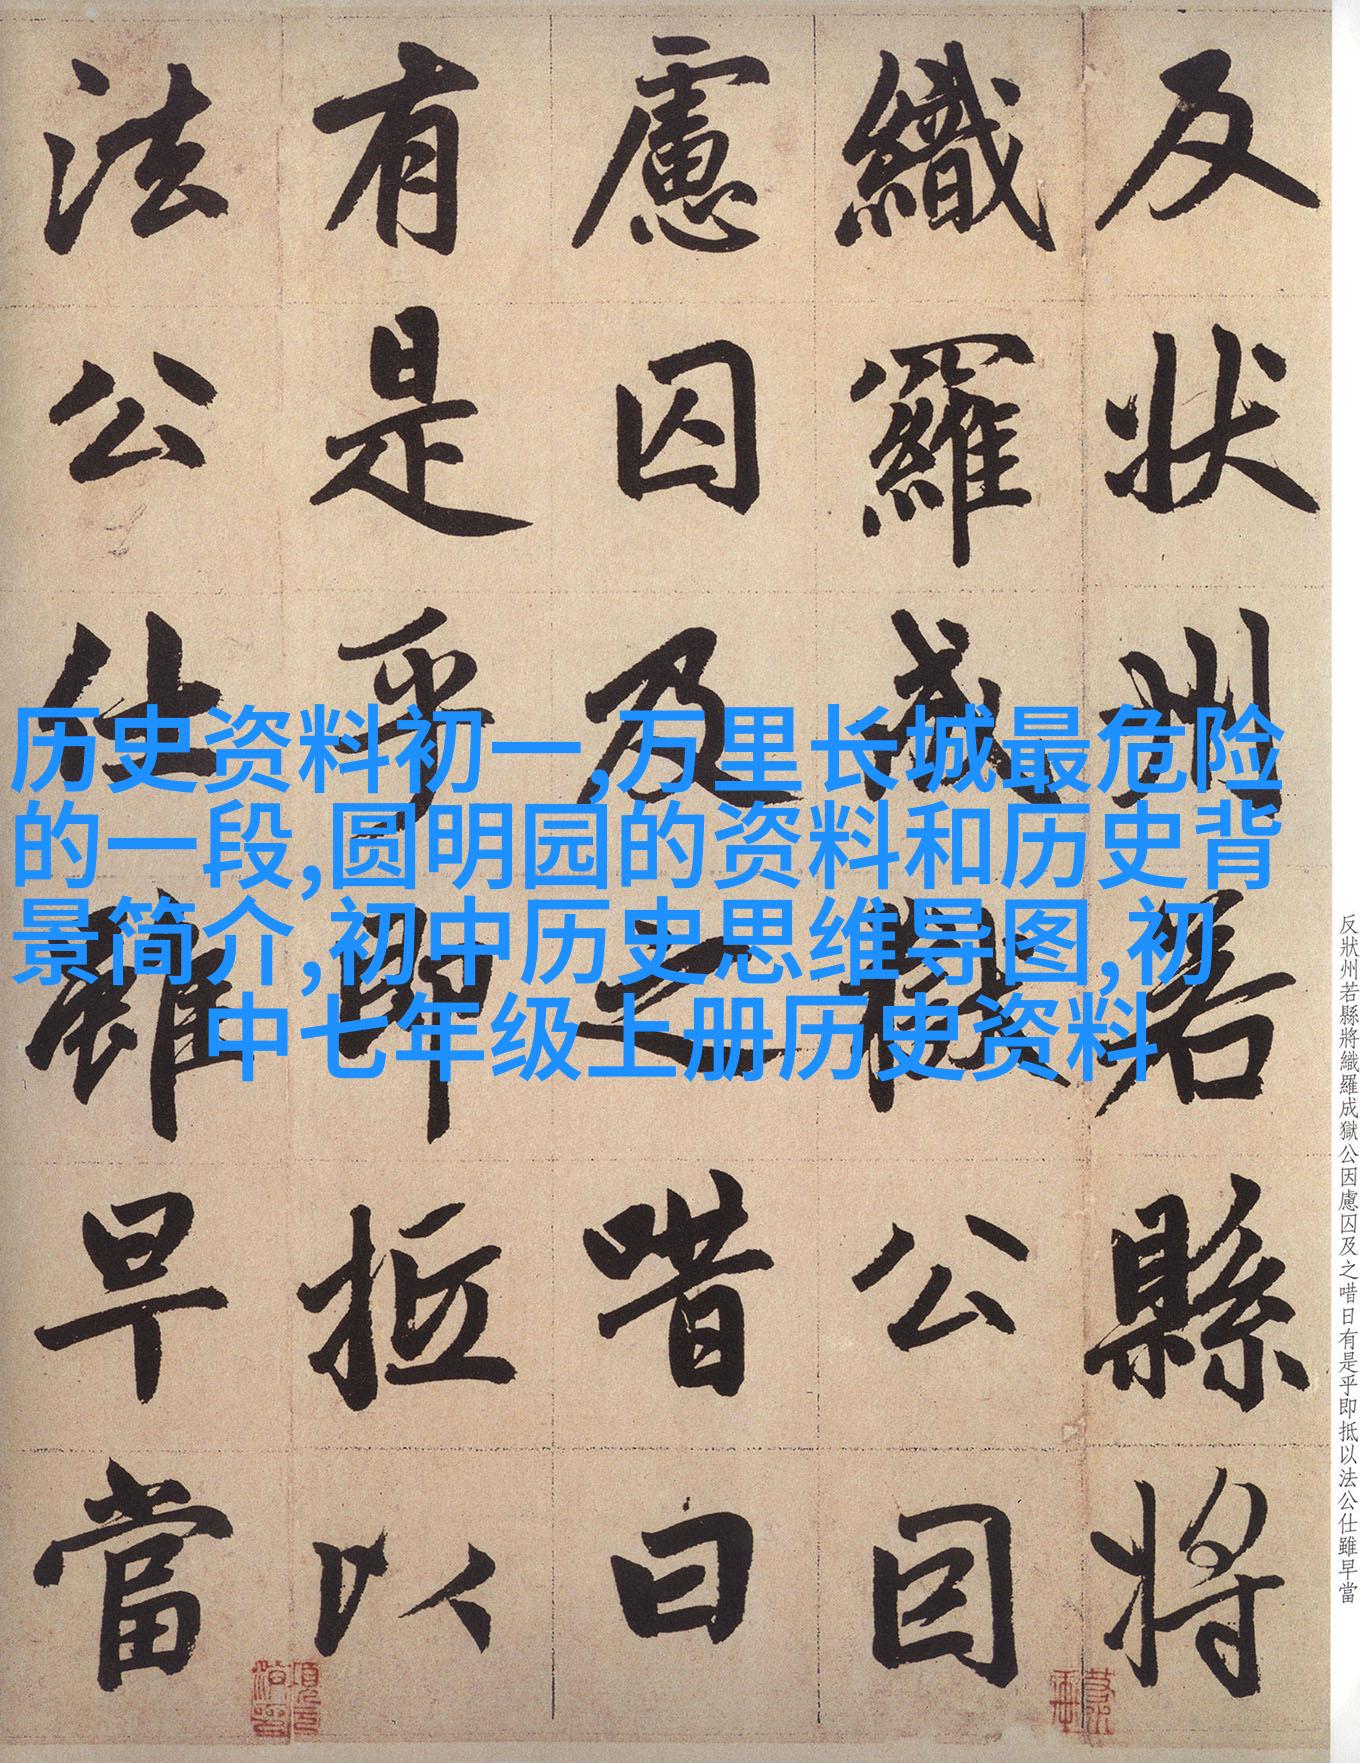 反狀州若縣將
織羅成獄公因
慮囚及之唶曰
有是乎即抵以
法公仕雖早當
历史资料初一,万里长城最危险
的一段,圆明园的资料和历史背
景简介,初中历史思维导图,初
中七年级上册历史资料
反狀州若縣將織羅成獄公因慮囚及之唶日有是乎即抵以法公仕雖早當